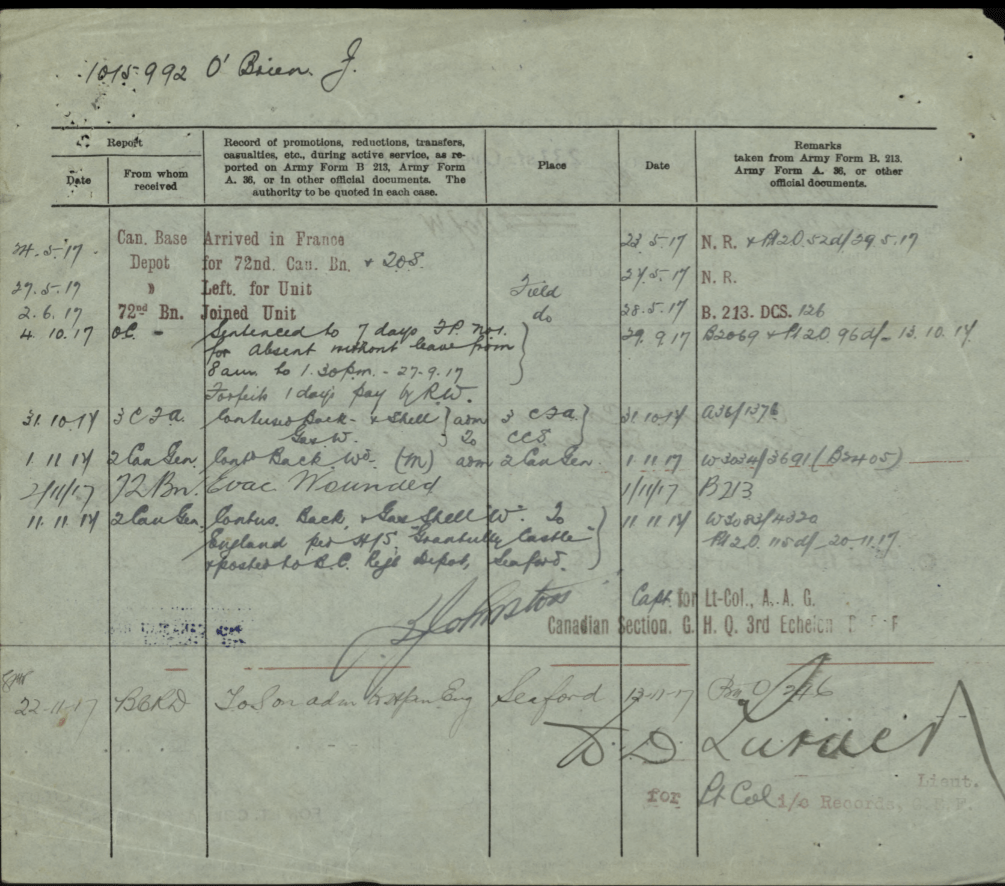 1015992 O'Brien. J.
Report
Date
From whom received
Record of promotions, reductions, transfers, casualties, etc., during active service, as reported on Army Form B 213, Army Form A. 36, or in other official documents. The authority to be quoted in each case.
Place
Date
Remarks
taken from Army Form B. 213. Army Form A. 36, or other official documents.
24.5.17 Can. Base Arrived in France 23.5.17 N. R. + Pt 2 O. 52 d/ 29.5.17
Depot for 72nd. Can. Bn. + 208.
27.5.17 " Left. for Unit Field 27.5.17 N. R.
2.6.17 72nd Bn. Joined Unit do 28.5.17 B. 213. DCS. 126
4.10.17 O.C. - Sentenced to 7 days F.P. No 1. 29.9.17 B2069 + Pt 2 O. 96 d/- 13.10.17
for absent without leave from
8 am. to 1.30 pm. - 27-9.17
Forfeits 1 days pay by R.W.
31.10.17 3 C F A. Contused Back - & Shell adm 3 C F A. 31.10.17 A36/1376
Gas W. To CCS.
1.11.17 2 Can Gen. Cont Back Wd. (M) adm 2 Can Gen. 1.11.17 W3034/3691 (B2405)
2/11/17 72 Bn. Evac Wounded 1/11/17 B213
11.11.17 2 Can Gen. Contus. Back & Gas Shell W. To 11.11.17 W3083/4320
England per H/S. Grantully Castle Pt 2 O. 115 d/- 20.11.17.
& posted to B.C. Regtl Depot, Seaford.
Johnston Capt. for Lt-Col., A. A. G.
Canadian Section. G. H. Q. 3rd Echelon
22-11-17 BCRD Seaford 12-11-17
for Lt Col i/c Records,
Lieut.